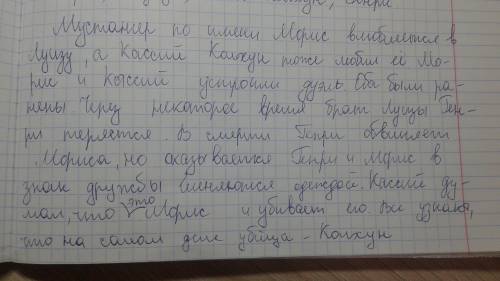 Мустангер по имени Морис влюбляется в
Луизу, а Кассий Колхун тоже любил её Мо-
рис и Кассий устроили дуэль. Оба были ра-
нены Через некоторое время брат Луизы Ген-
ри теряется. В смерти Генри обвиняют
Мориса, но оказывается Генри и Морис в
знак дружбы меняются одеждой. Кассий ду-
мал, что это Морис и убивает его. Все узнают,
что на самом деле убийца - Колхун